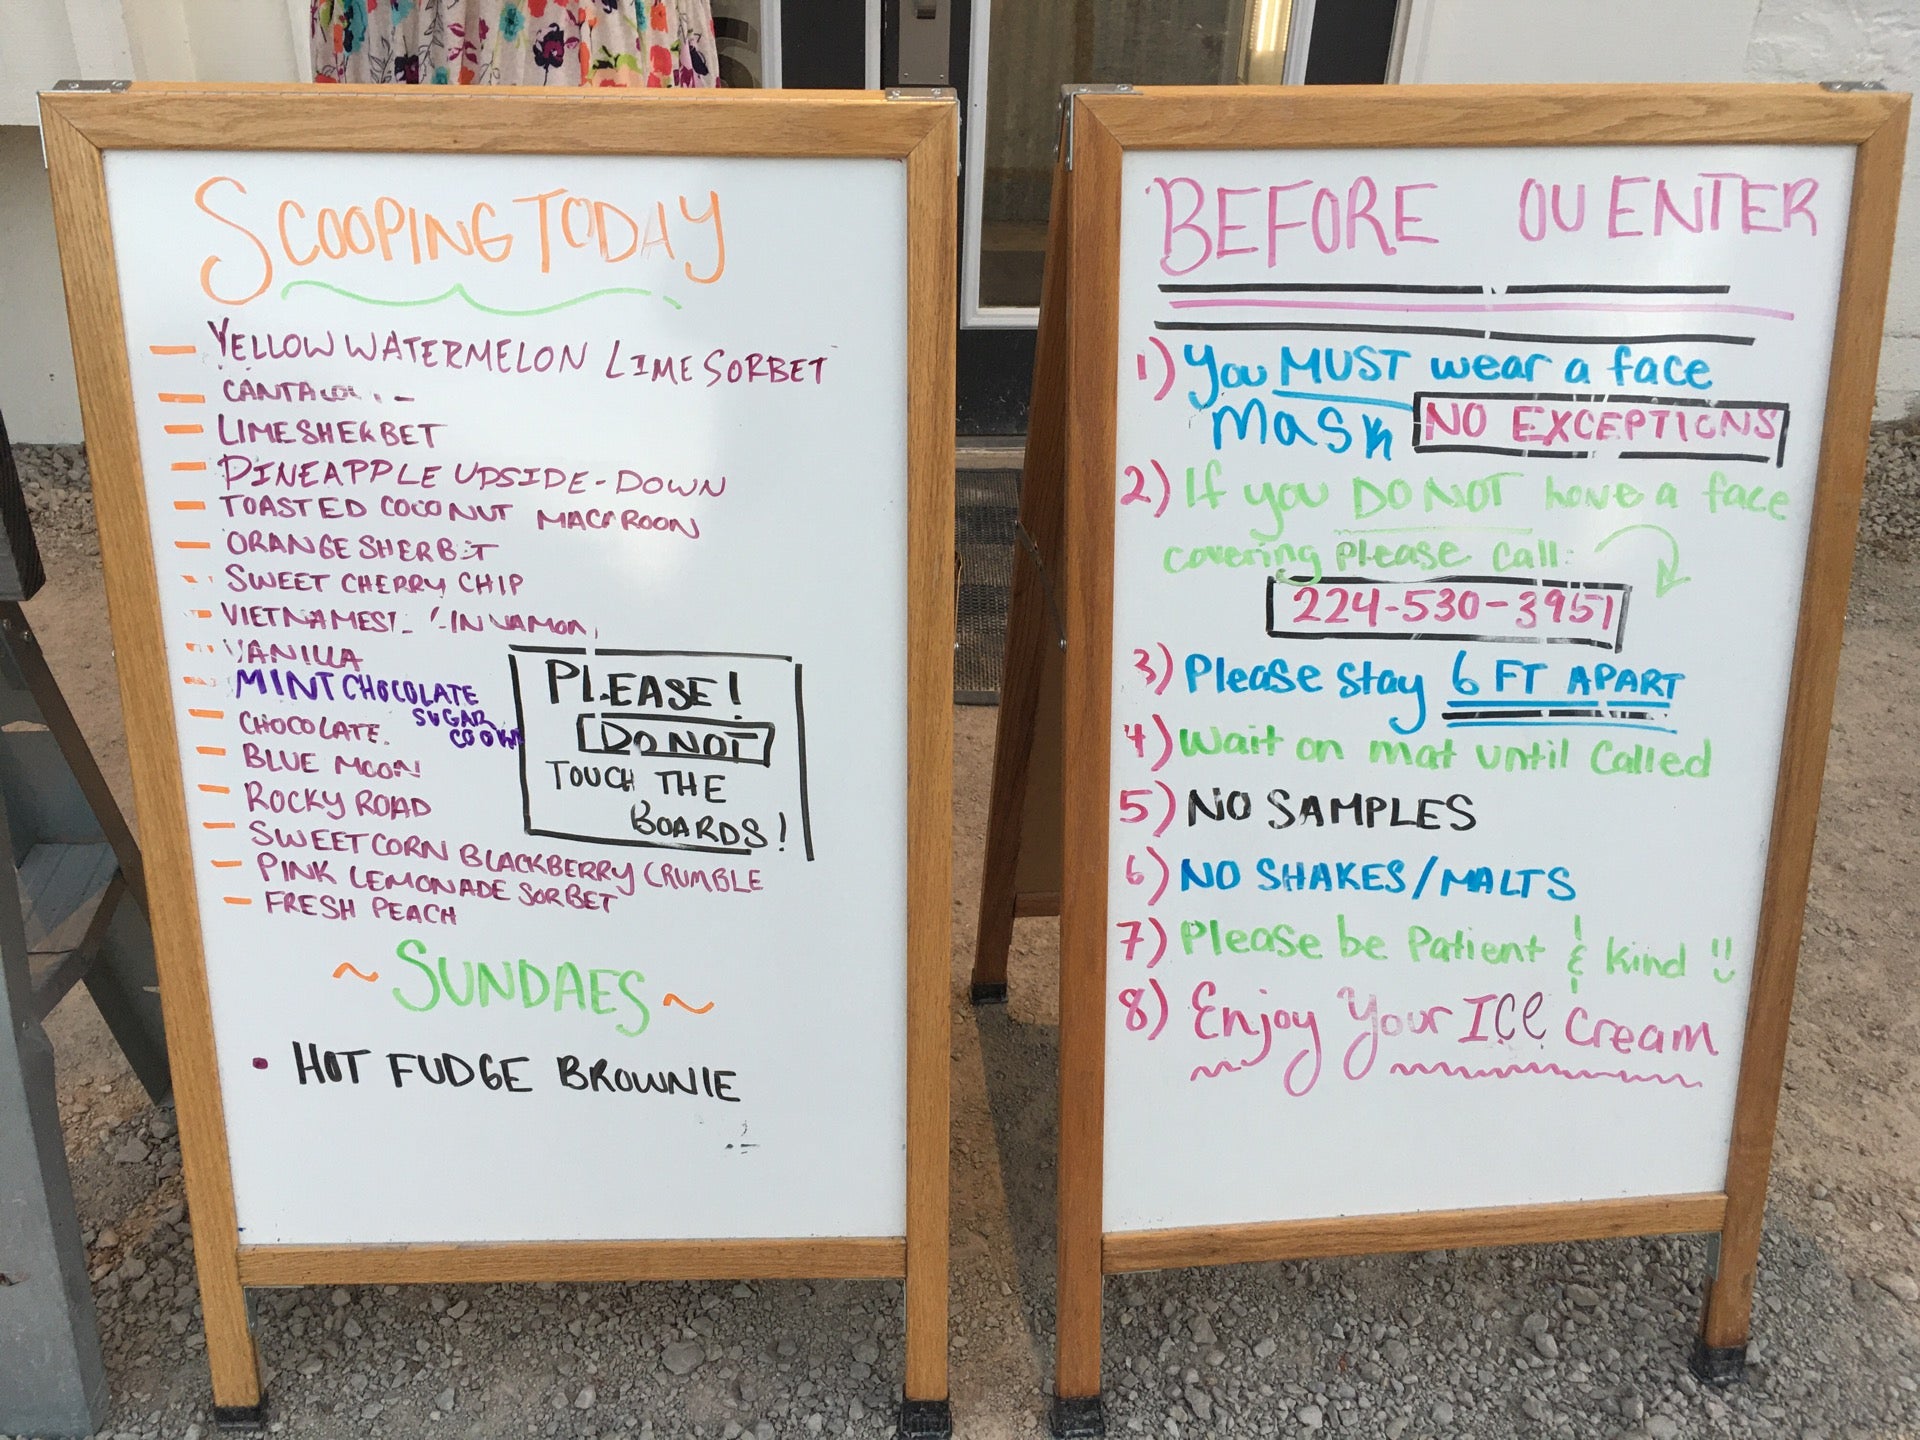 SCOOPING TODAY
YELLOW WATERMELON LIME SORBET
LIME SHERBET
PINEAPPLE UPSIDE-DOWN
TOASTED COCONUT MACAROON
ORANGE SHERBET
SWEET CHERRY CHIP
VIETNAMESE CINNAMON
VANILLA
MINT CHOCOLATE
SUGAR
CHOCOLATE
BLUE MOON
ROCKY ROAD
SWEET CORN BLACKBERRY CRUMBLE
PINK LEMONADE SORBET
FRESH PEACH
PLEASE!
DO NOT
TOUCH THE
BOARDS!
~ SUNDAES ~
• HOT FUDGE BROWNIE
BEFORE OU ENTER
1) You MUST wear a face
mask NO EXCEPTIONS
2) If you DO NOT have a face
covering please call:
224-530-3951
3) Please stay 6 FT APART
4) Wait on mat until called
5) NO SAMPLES
6) NO SHAKES/MALTS
7) Please be patient & kind !!
8) Enjoy your ICE cream